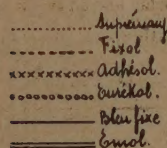 Suprémary
Fixol
Adhésol.
Eurékol.
Bleu fixe
Emol.